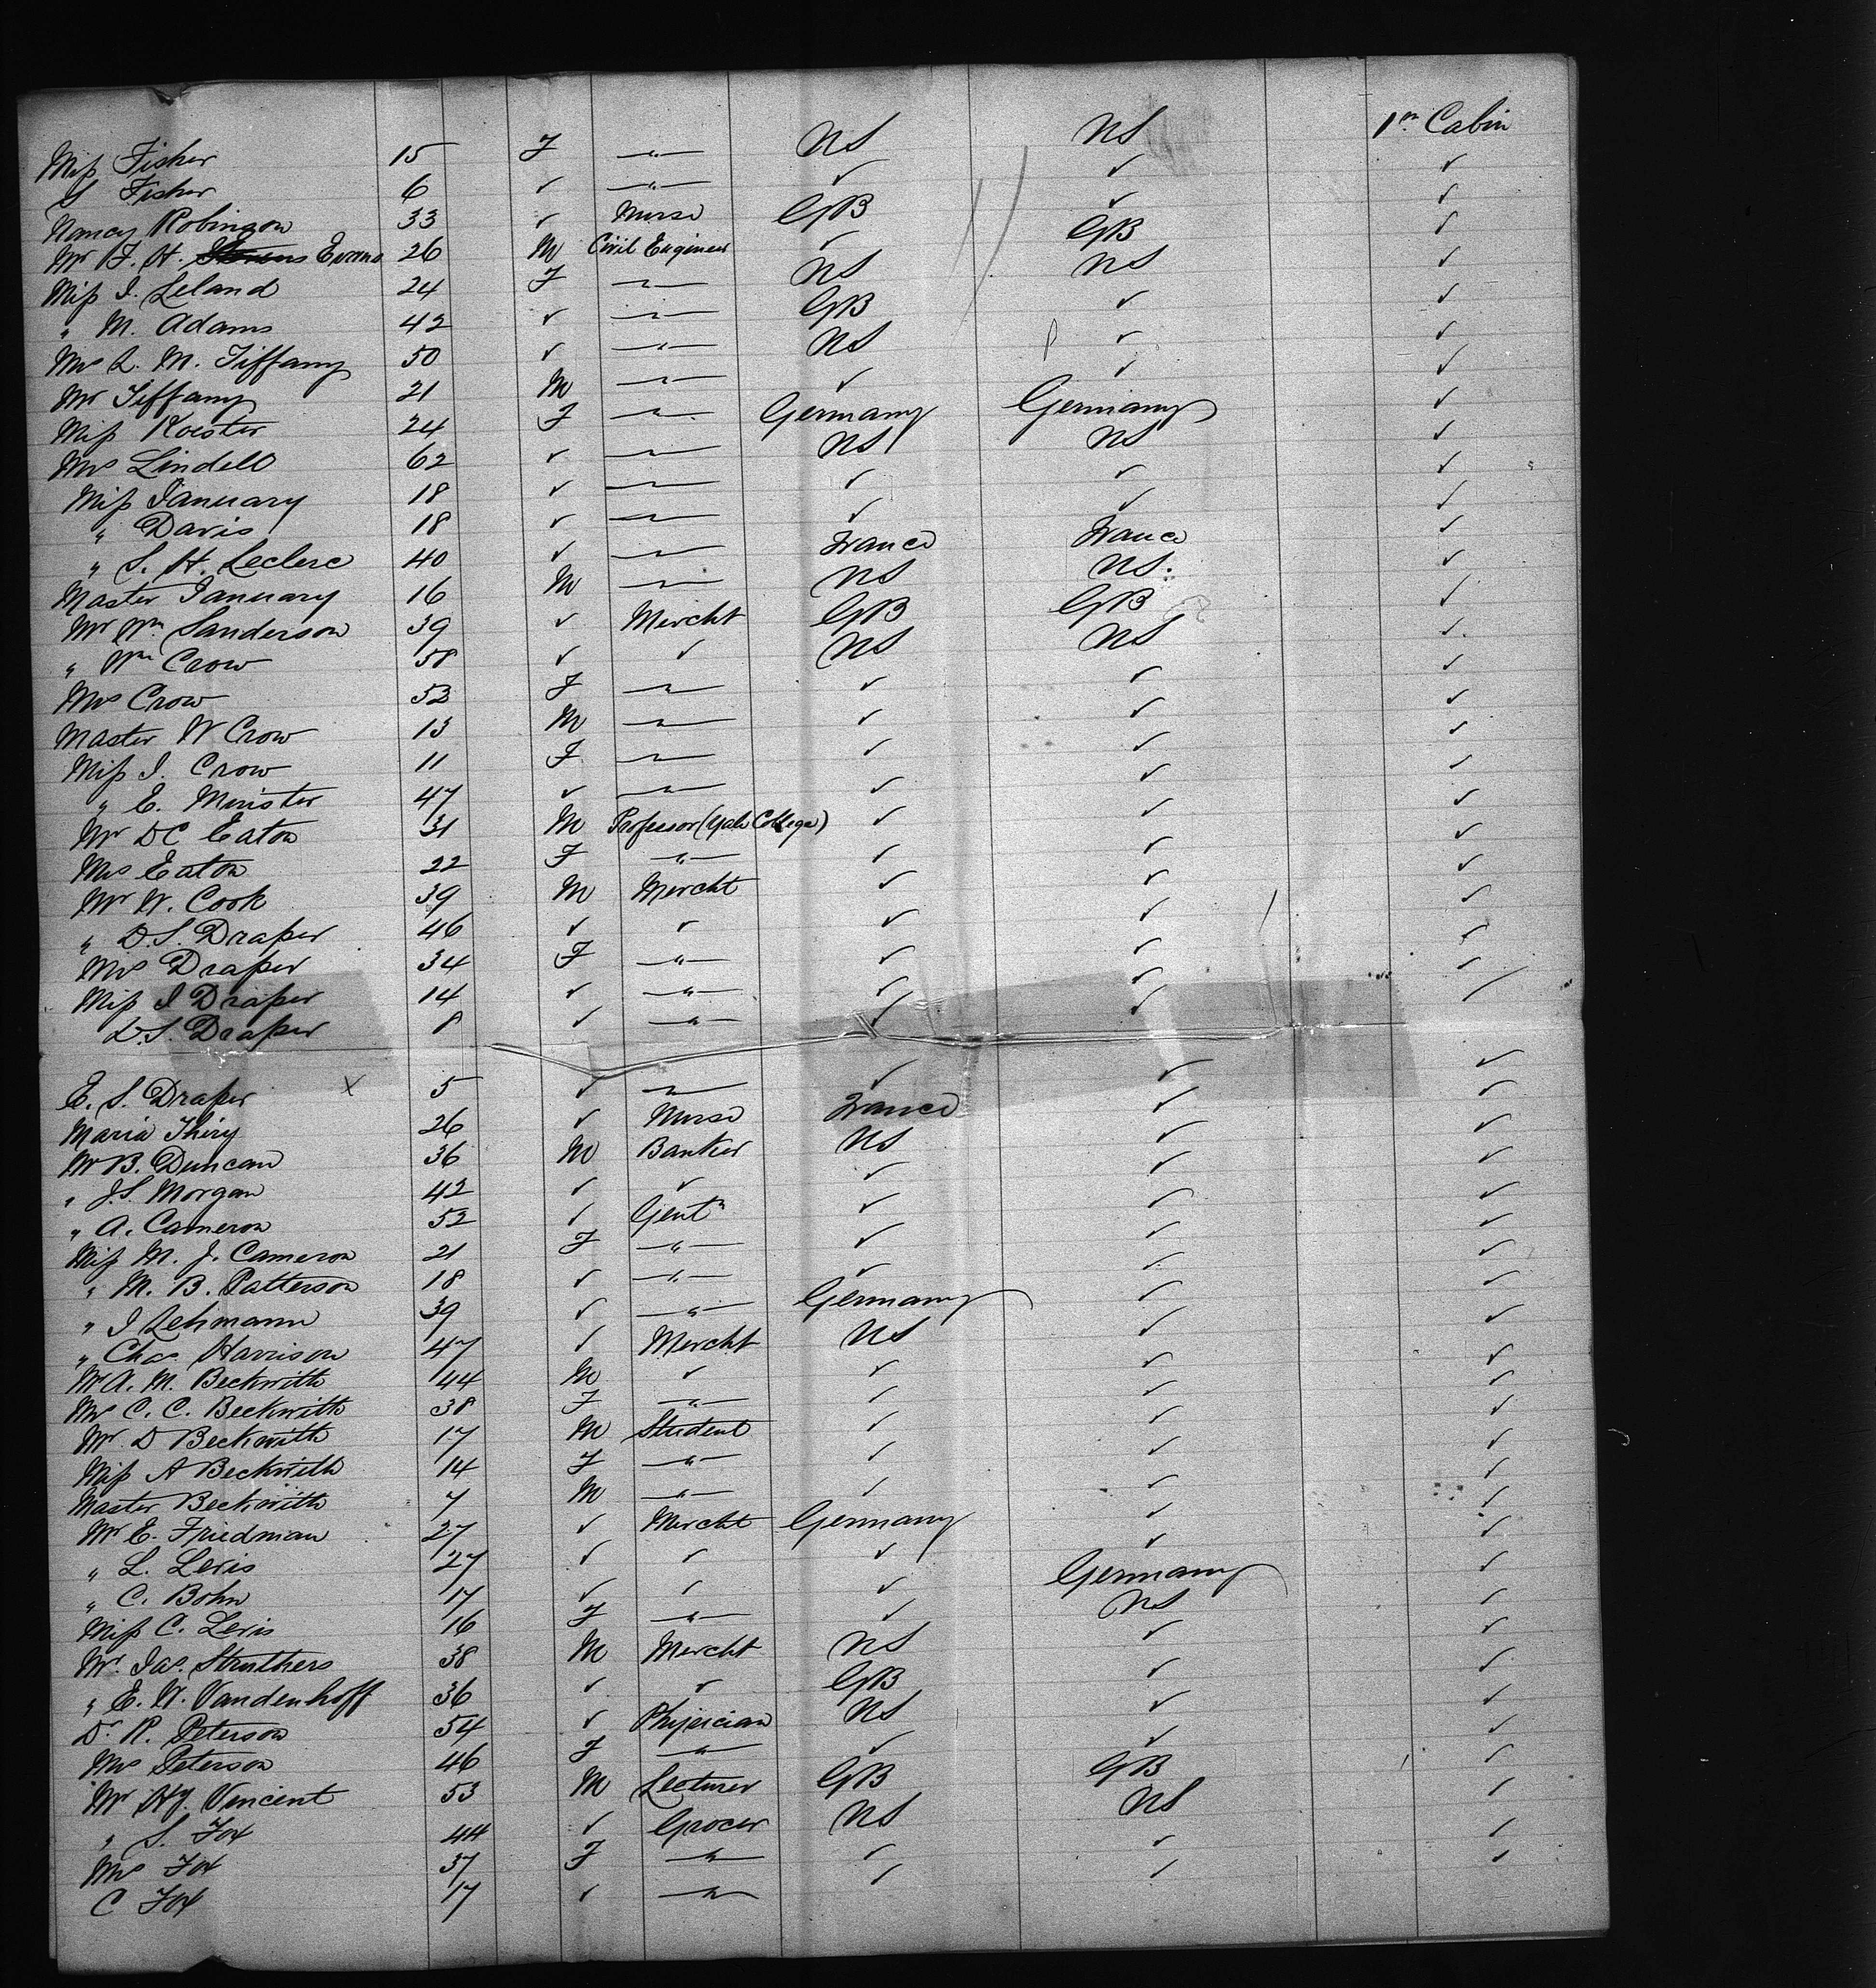 Miss Fisher 15 F —"— US US 1st Cabin
S Fisher 6 ✓ —"— ✓ ✓ ✓
Nancy Robinson 33 ✓ Nurse GB ✓ ✓
Mr F. H. Evans 26 M Civil Engineer ✓ GB ✓
Miss I. Leland 24 F —"— US US ✓
" M. Adams 42 ✓ —"— GB ✓ ✓
Mrs L. M. Tiffany 50 ✓ —"— US ✓ ✓
Mr Tiffany 21 M —"— ✓ ✓ ✓
Miss Koester 24 F —"— Germany Germany ✓
Mrs Lindell 62 ✓ —"— US US ✓
Miss January 18 ✓ —"— ✓ ✓ ✓
" Davis 18 ✓ —"— ✓ ✓ ✓
" S. H. Leclerc 40 ✓ —"— France France ✓
Master January 16 M —"— US US. ✓
Mr Wm Sanderson 39 ✓ Mercht GB GB ✓
" Wm Crow 58 ✓ ✓ US US ✓
Mrs Crow 53 F —"— ✓ ✓ ✓
Master W Crow 13 M —"— ✓ ✓ ✓
Miss I. Crow 11 F —"— ✓ ✓ ✓
" E. Minister 47 ✓ —"— ✓ ✓ ✓
Mr DC Eaton 31 M Professor (Yale College) ✓ ✓ ✓
Mrs Eaton 22 F —"— ✓ ✓ ✓
Mr W. Cook 39 M Mercht ✓ ✓ ✓
" D.S. Draper 46 ✓ ✓ ✓ ✓ ✓
Mrs Draper 34 F —"— ✓ ✓ ✓
Miss I Draper 14 ✓ —"— ✓ ✓ ✓
D.S. Draper 8 ✓ —"— ✓ ✓ ✓
E. S. Draper X 5 ✓ —"— ✓ ✓ ✓
Maria Thiry 26 ✓ Nurse France ✓ ✓
Mr B. Duncan 36 M Banker US ✓ ✓
" J.S. Morgan 42 ✓ ✓ ✓ ✓ ✓
" A. Cameron 52 ✓ Gentn ✓ ✓ ✓
Miss M. J. Cameron 21 F —"— ✓ ✓ ✓
" M. B. Patterson 18 ✓ —"— ✓ ✓ ✓
" I Lehmann 39 ✓ —"— Germany ✓ ✓
" Chas. Harrison 47 ✓ Mercht US ✓ ✓
Mr A. M. Beckwith 44 M ✓ ✓ ✓ ✓
Mrs C. C. Beckwith 38 F —"— ✓ ✓ ✓
Mr D Beckwith 17 M Student ✓ ✓ ✓
Miss A Beckwith 14 F —"— ✓ ✓ ✓
Master Beckwith 7 M —"— ✓ ✓ ✓
Mr E. Friedman 27 ✓ Mercht Germany ✓ ✓
" L. Levis 27 ✓ ✓ ✓ ✓ ✓
" C. Bohn 17 ✓ ✓ ✓ Germany ✓
Miss C. Levis 16 F —"— ✓ US ✓
Mr. Jas. Struthers 38 M Mercht US ✓ ✓
" E. W. Vandenhoff 36 ✓ ✓ GB ✓ ✓
Dr. R. Peterson 54 ✓ Physician US ✓ ✓
Mrs Peterson 46 F —"— ✓ ✓ ✓
Mr Hy. Vincent 53 M Lecturer GB GB ✓
" S. Fox 44 ✓ Grocer US US ✓
Mrs Fox 37 F —"— ✓ ✓ ✓
C Fox 17 ✓ —"— ✓ ✓ ✓